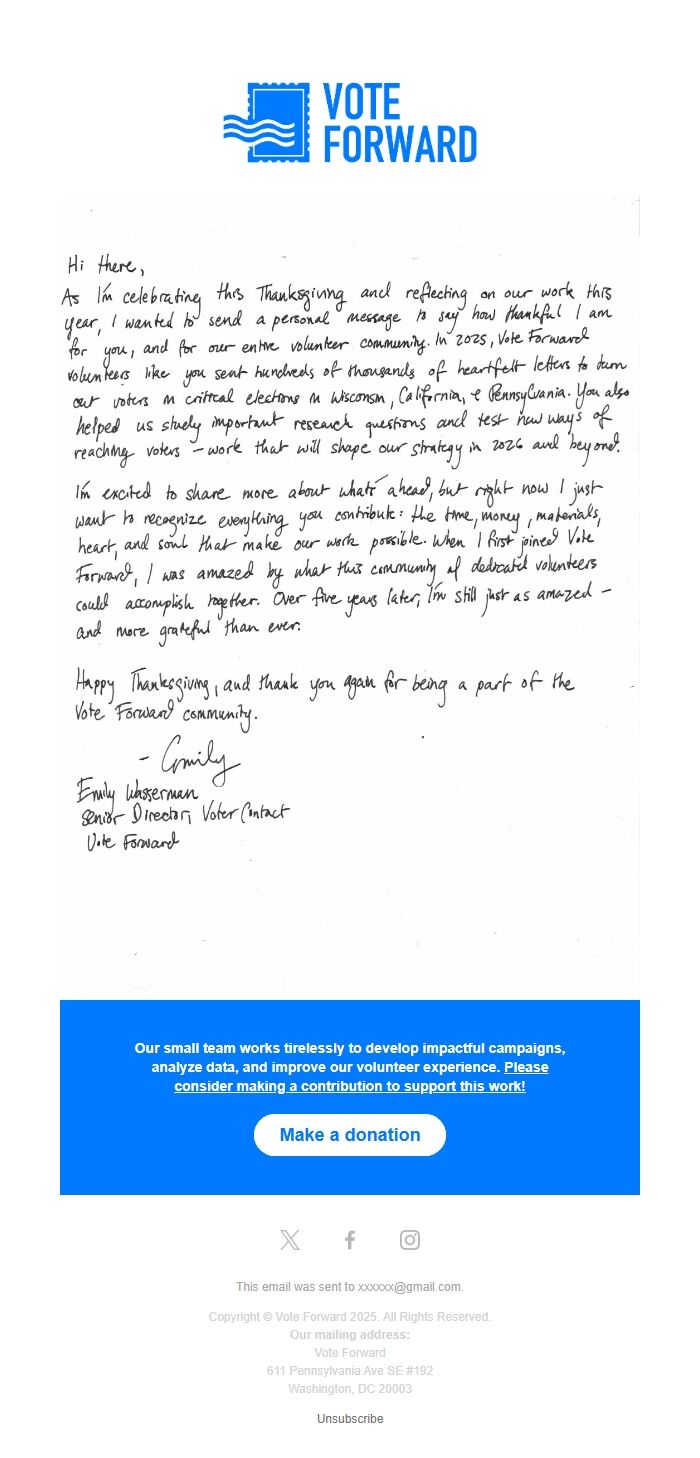 VOTE
FORWARD
Hi there,
As I'm celebrating this Thanksgiving and reflecting on our work this
year, I wanted to send a personal message to say how thankful I am
for you, and for our entire volunteer community. In 2025, Vote Forward
volunteers like you sent hundreds of thousands of heartfelt letters to turn
out voters in critical elections in Wisconsin, California, & Pennsylvania. You also
helped us study important research questions and test new ways of
reaching voters – work that will shape our strategy in 2026 and beyond.
I'm excited to share more about what's ahead, but right now I just
want to recognize everything you contribute: the time, money, materials,
heart, and soul that make our work possible. When I first joined Vote
Forward, I was amazed by what this community of dedicated volunteers
could accomplish together. Over five years later, I'm still just as amazed –
and more grateful than ever.
Happy Thanksgiving, and thank you again for being a part of the
Vote Forward community.
- Emily
Emily Wasserman
Senior Director, Voter Contact
Vote Forward
Our small team works tirelessly to develop impactful campaigns,
analyze data, and improve our volunteer experience. Please
consider making a contribution to support this work!
Make a donation
This email was sent to xxxxxx@gmail.com.
Copyright © Vote Forward 2025. All Rights Reserved.
Our mailing address:
Vote Forward
611 Pennsylvania Ave SE #192
Washington, DC 20003
Unsubscribe